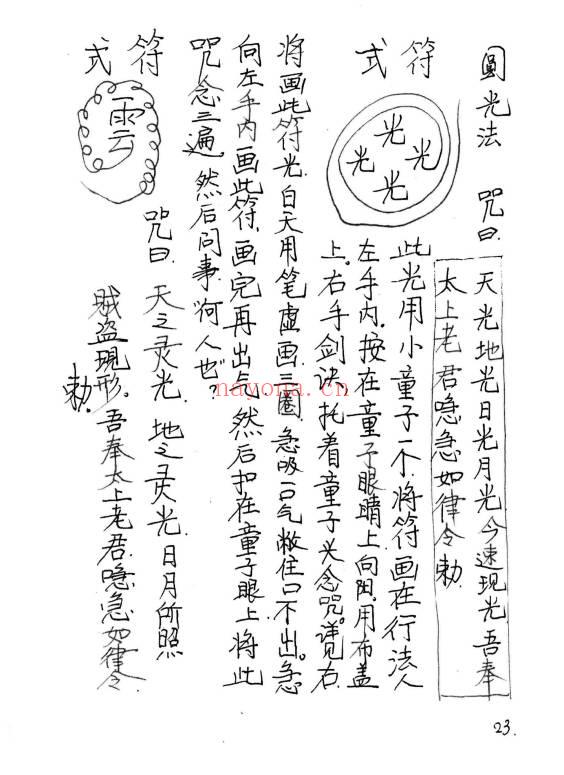 圆光法 咒曰
天光地光日光月光今速现光吾奉
太上老君噫急如律令勅
符式
光
光
光
光
此光用小童子一个.将符画在行法人
左手内.按在童子眼睛上向阳.用布盖
上。右手剑诀托着童子头念咒。
将画此符光.白天用笔虚画三圈.急吸一口气敝住口不出。急
向左手内画此符.画完再出气.然后扣在童子眼上将此
咒念三遍.然后问事"何人也?"
符式
雲
咒曰.天之灵光.地之灵光.日月所照
贼盗現形。吾奉太上老君.噫急如律令
勅.
nayona.cn
23.